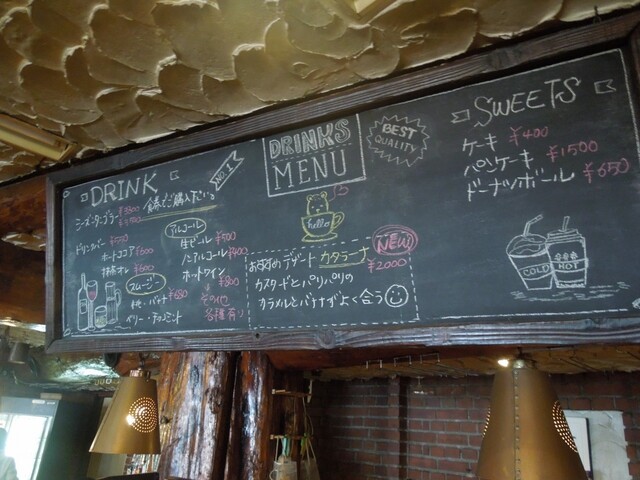 DRINK
NO.1
食券でご購入下さい。
ドリンクバー ¥550
ホットココア ¥600
抹茶オレ ¥600
スムージー
桃・バナナ ¥680
ベリー・チョコミント
アルコール
生ビール ¥500
ノンアルコール ¥400
ホットワイン
¥800
その他
各種有り
DRINKS
MENU
BEST
QUALITY
hello
NEW
おすすめデザート カタラーナ ¥2000
カスタードとパリパリの
カラメルとバナナがよく合う
SWEETS
ケーキ ¥400
パンケーキ ¥1500
ドーナツボール ¥650
COLD
HOT